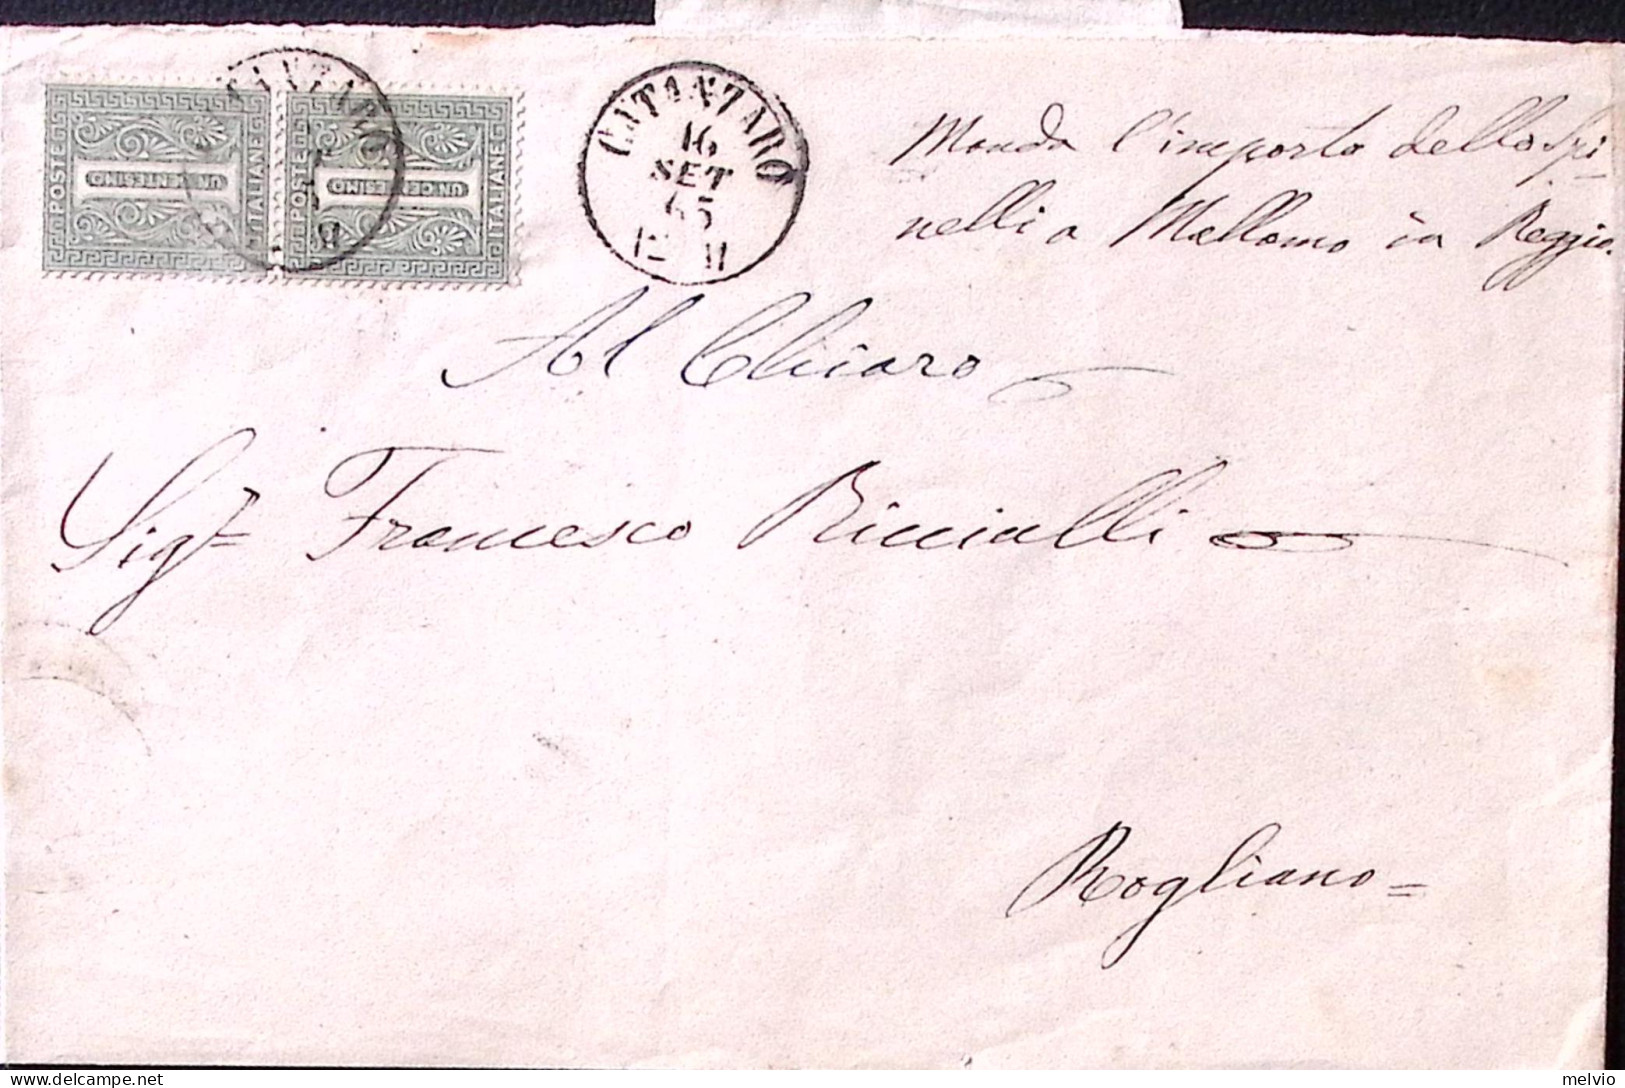 POSTE ITALIANE
UN CENTESIMO
POSTE ITALIANE
UN CENTESIMO
CATANZARO
CATANZARO
16
SET
65
12 M
Manda l'importo dello Spi-
nelli a Mallamo in Reggio.
Al Chiaro
Sigr Francesco Ricciulli
Rogliano=
melvio